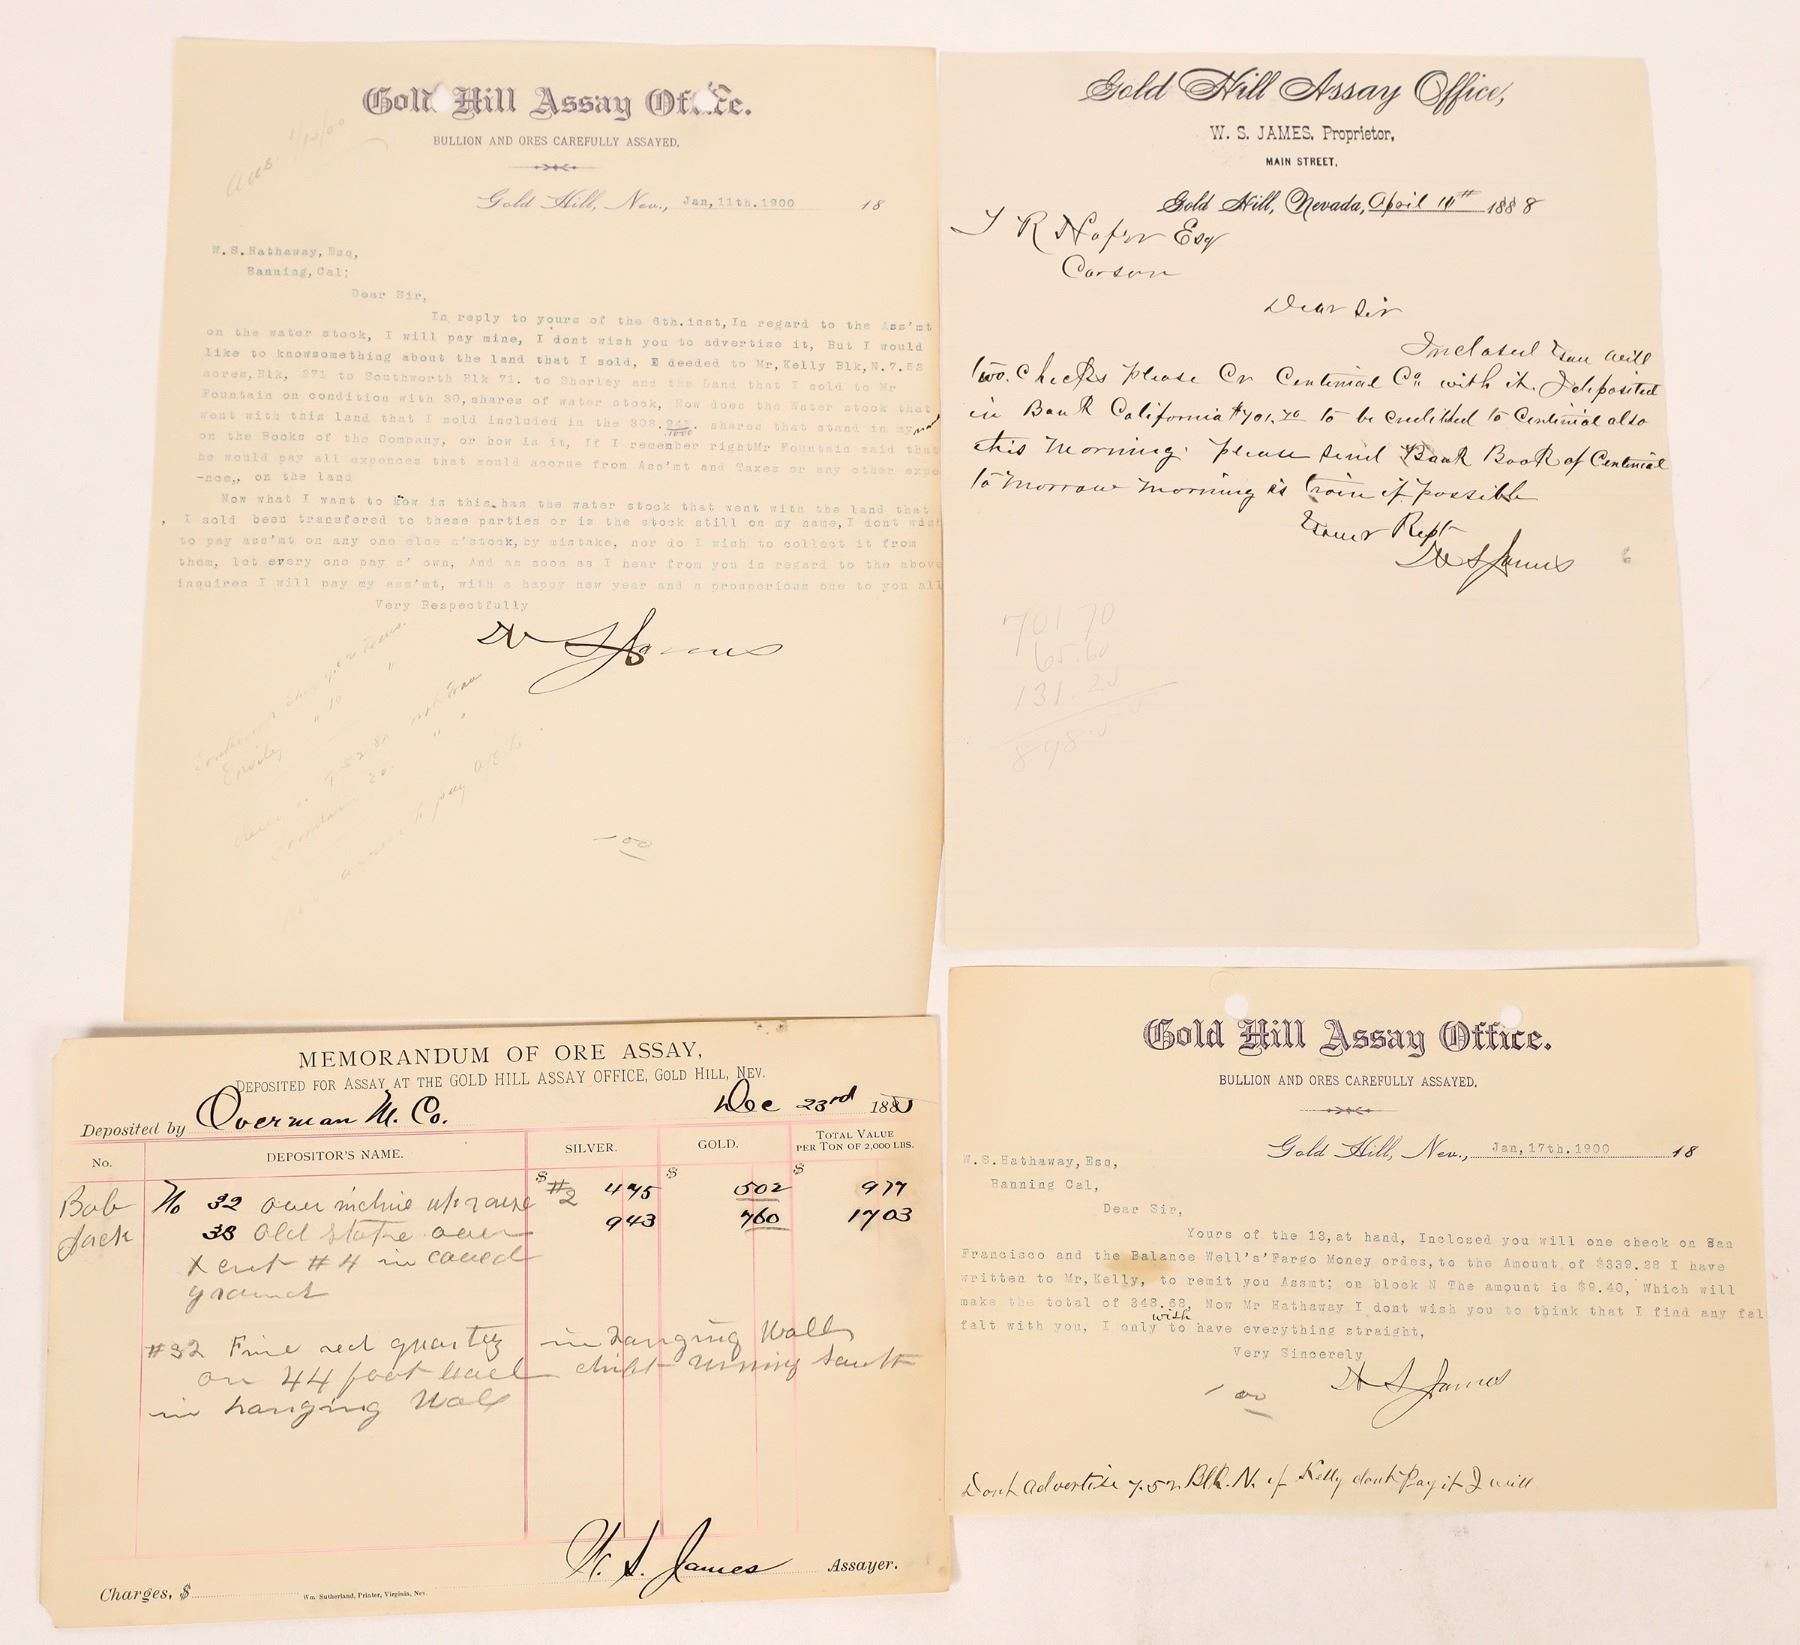 Gold Hill Assay Office.
BULLION AND ORES CAREFULLY ASSAYED.
Gold Hill, Nev., Jan, 11th. 1900 18
W.S.Hathaway, Esq,
Banning, Cal;
Dear Sir,
In reply to yours of the 6th.inst, In regard to the Ass'mt
on the water stock, I will pay mine, I dont wish you to advertise it, But I would
like to knowsomething about the land that I sold, I deeded to Mr, Kelly Blk, N.7.52
acres, Blk, 271 to Southworth Blk 71. to Shorley and the Land that I sold to Mr
Fountain on condition with 30, shares of water stock, Now does the Water stock that
went with this land that I sold included in the 308. shares that stand in my
on the Books of the Company, or how is it, If I remember rightMr Fountain said that
he would pay all expences that would accrue from Ass'mt and Taxes or any other expe
-nce,, on the land
Now what I want to kow is this, has the water stock that went with the land that
I sold been transfered to these parties or is the stock still on my name, I dont wish
to pay ass'mt on any one else s'stock, by mistake, nor do I wish to collect it from
them, let every one pay s' own, And as soon as I hear from you in regard to the above
inquires I will pay my ass'mt, with a happy new year and a prosperious one to you all
Very Respectfully
W S James
Gold Hill Assay Office,
W. S. JAMES, Proprietor,
MAIN STREET,
Gold Hill, Nevada, April 10th 1888
T R Hofer Esq
Carson
Dear Sir
Inclosed you will
two. checks please Cr Centinial Co. with it. I deposited
in Bank California $701.70 to be credited to Centinial also
this Morning. please send Bank Book of Centinial
to Morrow Morning is train if possible
Your Rept
W S James
701 70
65.60
131.25
MEMORANDUM OF ORE ASSAY,
DEPOSITED FOR ASSAY AT THE GOLD HILL ASSAY OFFICE, GOLD HILL, NEV.
Deposited by Overman M. Co. Dec 23rd 188
No. DEPOSITOR'S NAME. SILVER. GOLD. TOTAL VALUE PER TON OF 2,000 LBS.
$ $ $
Bob No 32 over incline upraise #2 475 502 977
Jack 38 Old stope over 943 760 1703
X cut #4 in caved
ground
#32 Fine red quartz in hanging Wall
on 44 foot level drift running South
in hanging Wall
W. S. James Assayer.
Charges, $
Wm. Sutherland, Printer, Virginia, Nev.
Gold Hill Assay Office.
BULLION AND ORES CAREFULLY ASSAYED.
Gold Hill, Nev., Jan, 17th. 1900 18
W.S.Hathaway, Esq,
Banning Cal,
Dear Sir,
Yours of the 13, at hand, Inclosed you will one check on San
Francisco and the Balance Well's'Fargo Money ordes, to the Amount of $339.28 I have
written to Mr, Kelly, to remit you Assmt; on block N The amount is $9.40, Which will
make the total of 348.68, Now Mr Hathaway I dont wish you to think that I find any fal
falt with you, I only wish to have everything straight,
Very Sincerely
W S James
1 00
Dont advertise 7.52 Blk. N. if Kelly dont Pay it I will